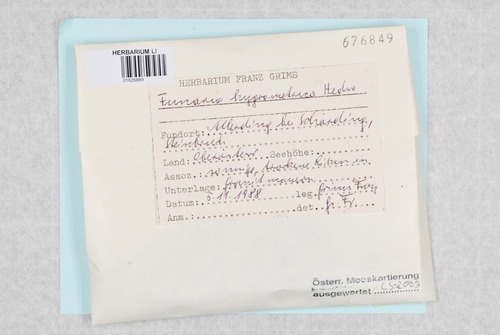 HERBARIUM LI
676849
HERBARIUM FRANZ GRIMS
Funaria hygrometrica Hedw
Fundort: Allerding bei Schärding,
Steinbruch
Land: Oberösterr Seehöhe:
Assoz. sonnige, trockene in
Unterlage: Granitmauer
Datum: 5.11.1988 leg. Grims Franz
Anm.: det. Gr. Fr.
Österr. Mooskartierung
ausgewertet